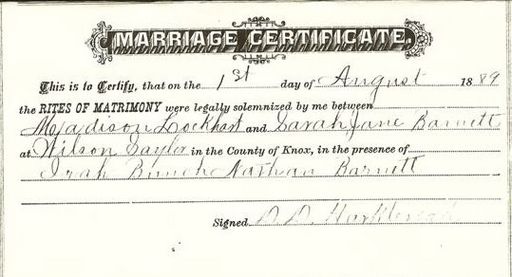 MARRIAGE CERTIFICATE.
This is to Certify, that on the 1st day of August 1889
the RITES OF MATRIMONY were legally solemnized by me between
Madison Lockhart and Sarah Jane Barnett
at Wilson Saylor in the County of Knox, in the presence of
Bunch Nathan Barnett
Signed D. D.